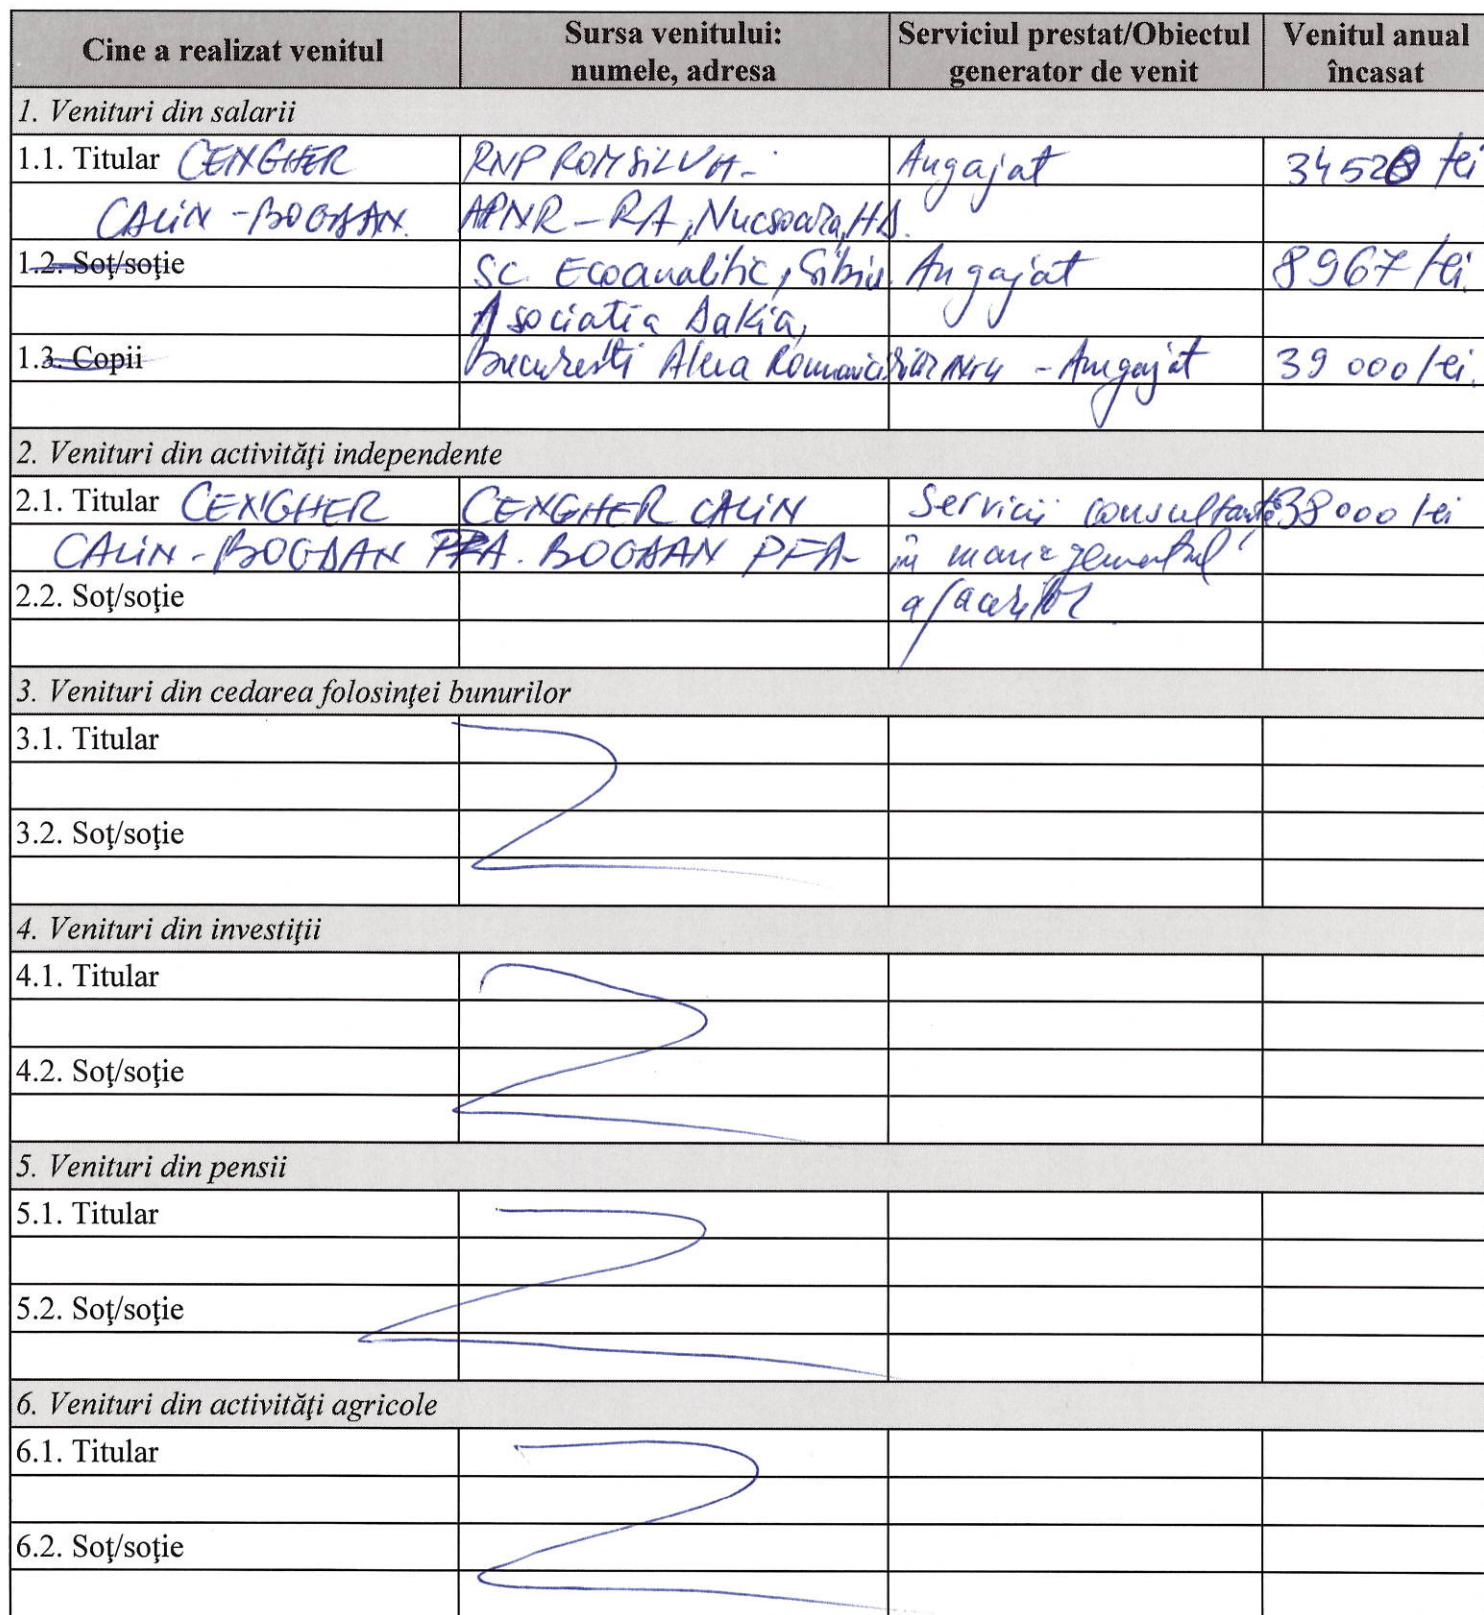 Cine a realizat venitul | Sursa venitului: numele, adresa | Serviciul prestat/Obiectul generator de venit | Venitul anual încasat
1. Venituri din salarii
1.1. Titular CENGHER | RNP ROMSILVA - | Angajat | lei
CALIN-BOGDAN. | APNR-RA, Nucsoara, HD.
1.2. Soţ/soţie | SC. Ecoanalitic, Sibiu. | Angajat | 8967 lei.
Asociatia Dakia,
1.3. Copii | Bucuresti Alexa Angajat | 39 000 lei.
2. Venituri din activităţi independente
2.1. Titular CENGHER | CENGHER CALIN | Servicii consultanta | 38000 lei
CALIN-BOGDAN PFA. | BOGDAN PFA- | in managementul
2.2. Soţ/soţie | afacerilor
3. Venituri din cedarea folosinţei bunurilor
3.1. Titular
3.2. Soţ/soţie
4. Venituri din investiţii
4.1. Titular
4.2. Soţ/soţie
5. Venituri din pensii
5.1. Titular
5.2. Soţ/soţie
6. Venituri din activităţi agricole
6.1. Titular
6.2. Soţ/soţie